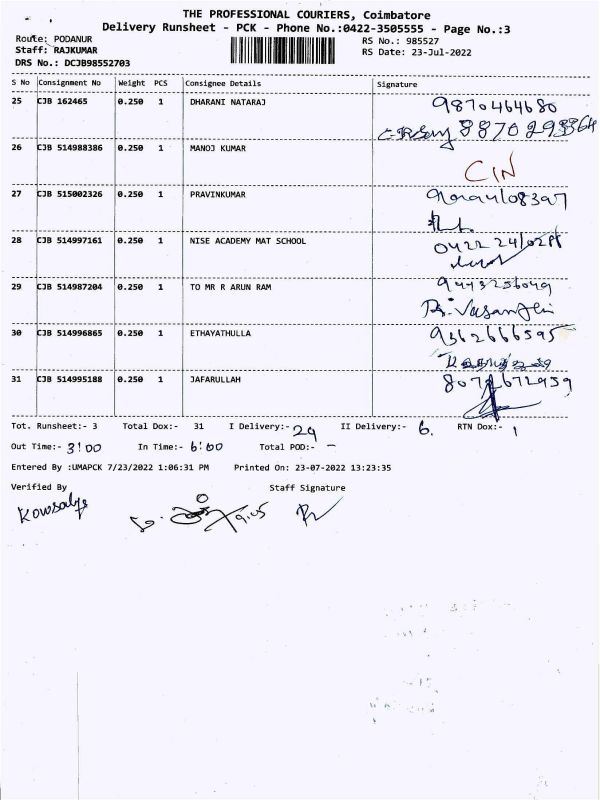 THE PROFESSIONAL COURIERS, Coimbatore
Delivery Runsheet - PCK - Phone No.:0422-3505555 - Page No.:3
Route: PODANUR
RS No.: 985527
Staff: RAJKUMAR
RS Date: 23-Jul-2022
DRS No.: DCJB98552703
S No Consignment No Weight PCS Consignee Details Signature
25 CJB 162465 0.250 1 DHARANI NATARAJ 9870464680
26 CJB 514988386 0.250 1 MANOJ KUMAR
27 CJB 515002326 0.250 1 PRAVINKUMAR
28 CJB 514997161 0.250 1 NISE ACADEMY MAT SCHOOL
29 CJB 514987204 0.250 1 TO MR R ARUN RAM 9443256049
30 CJB 514996865 0.250 1 ETHAYATHULLA 9362666595
31 CJB 514995188 0.250 1 JAFARULLAH
Tot. Runsheet:- 3 Total Dox:- 31 I Delivery:- 24 II Delivery:- 6. RTN Dox:- 1
Out Time:- 3:00 In Time:- 6:00 Total POD:- -
Entered By :UMAPCK 7/23/2022 1:06:31 PM Printed On: 23-07-2022 13:23:35
Verified By Staff Signature